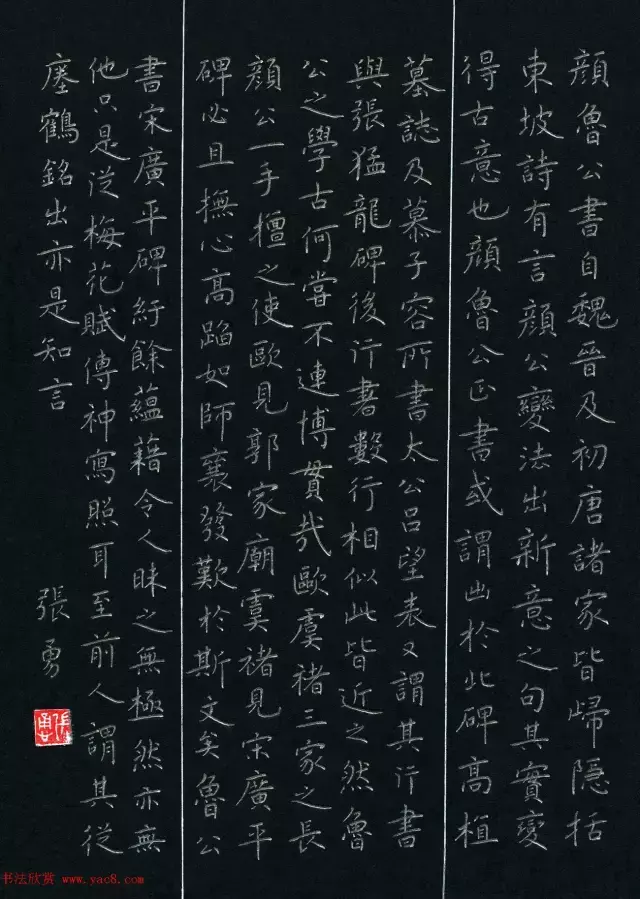 顏魯公書自魏晉及初唐諸家皆歸隱括
東坡詩有言顏公變法出新意之句其實變
得古意也顏魯公正書或謂出於此碑高植
墓誌及慕子容所書太公呂望表又謂其行書
與張猛龍碑後行書數行相似此皆近之然魯
公之學古何嘗不連博貫哉歐虞褚三家之長
顏公一手擅之使歐見郭家廟虞褚見宋廣平
碑必且撫心高蹈如師襄發歎於斯文矣魯公
書宋廣平碑紆餘蘊藉令人味之無極然亦無
他只是從梅花賦傳神寫照耳至前人謂其從
瘞鶴銘出亦是知言
張勇
书法欣赏 www.yac8.com